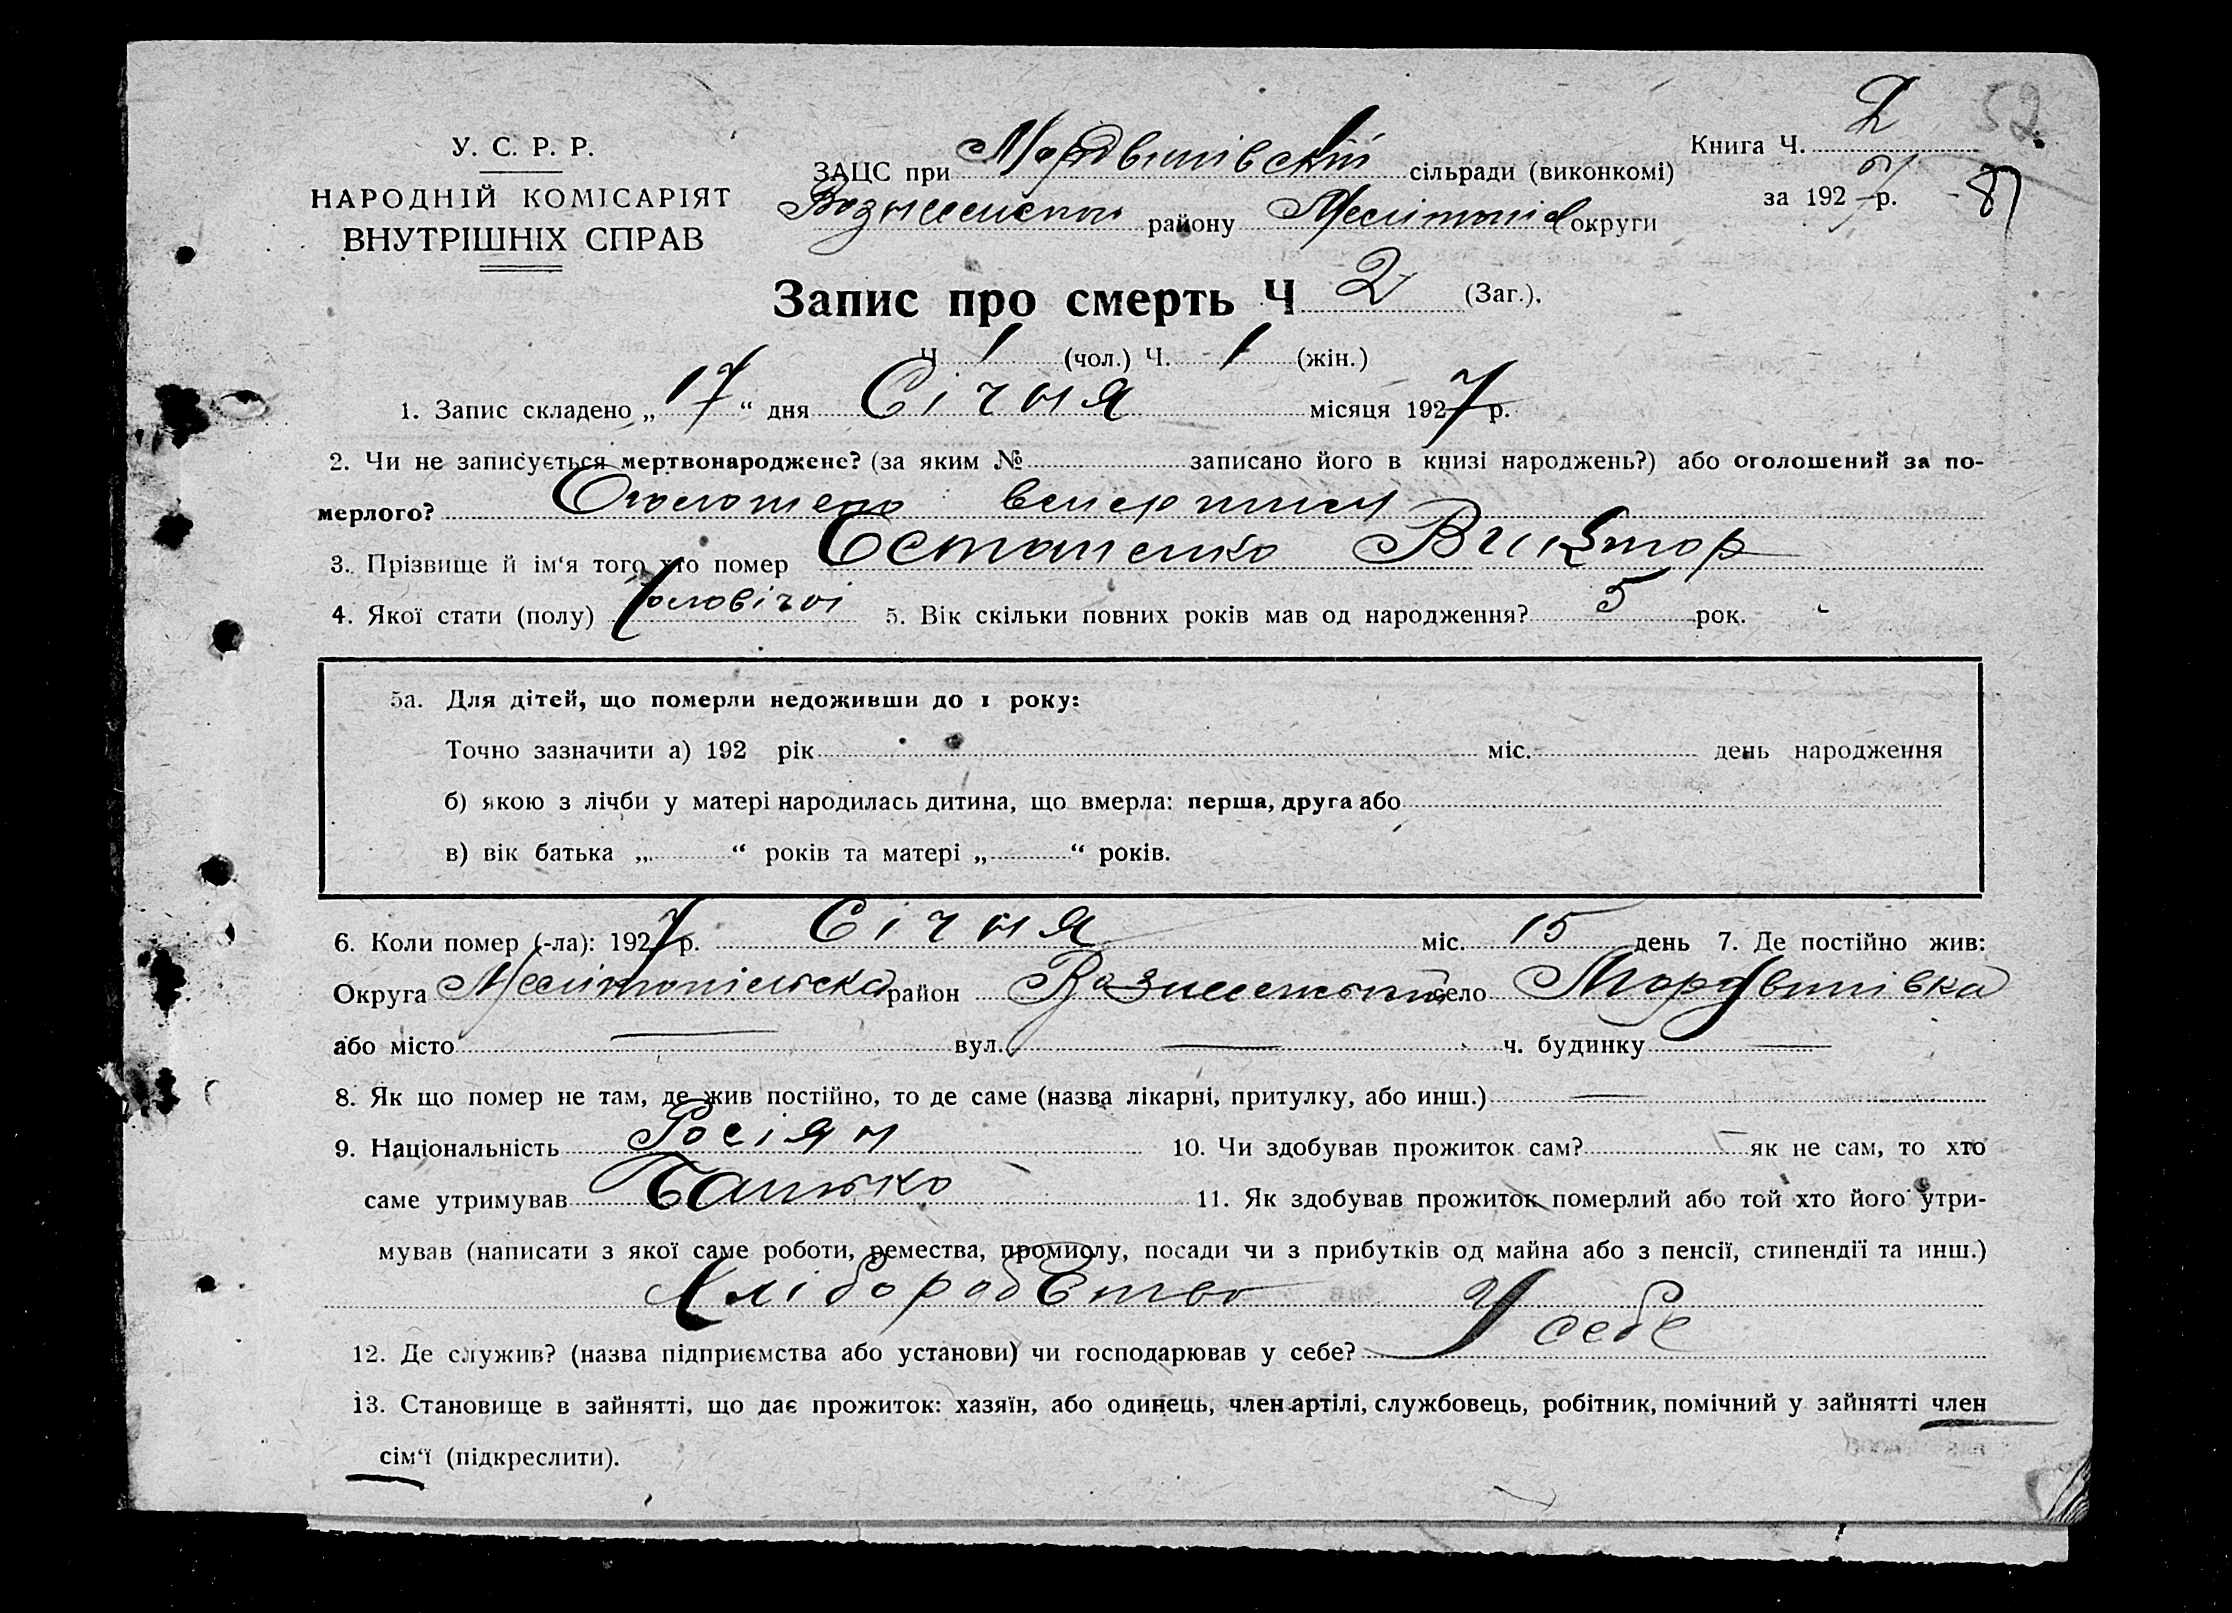 52
У. С. Р. Р.
НАРОДНІЙ КОМІСАРІЯТ
ВНУТРІШНІХ СПРАВ
ЗАЦС при Мордвинівській сільради (виконкомі)
району Мелітопів округи
Книга Ч. 2
за 1927 р.
87
Запис про смерть Ч 2 (Заг.).
Ч 1 (чол.) Ч. 1 (жін.)
1. Запис складено „17“ дня Січня місяця 1927 р.
2. Чи не записується мертвонароджене? (за яким № записано його в книзі народжень?) або оголошений за по-
мерлого? Оголошено
3. Прізвище й ім'я того хто помер Остапенко Віктор
4. Якої стати (полу) Чоловічої 5. Вік скільки повних років мав од народження? 5 рок.
5а. Для дітей, що померли недоживши до 1 року:
Точно зазначити а) 192 рік міс. день народження
б) якою з лічби у матері народилась дитина, що вмерла: перша, друга або
в) вік батька „ “ років та матері „ “ років.
6. Коли помер (-ла): 1927 р. Січня міс. 15 день 7. Де постійно жив:
Округа Мелітопільска район село Мордвинівка
або місто — вул. — ч. будинку —
8. Як що помер не там, де жив постійно, то де саме (назва лікарні, притулку, або инш.) —
9. Національність Росіян 10. Чи здобував прожиток сам? — як не сам, то хто
саме утримував Батько 11. Як здобував прожиток померлий або той хто його утри-
мував (написати з якої саме роботи, ремества, промислу, посади чи з прибутків од майна або з пенсії, стипендії та инш.)
Хліборобство
12. Де служив? (назва підприємства або установи) чи господарював у себе? У себе
13. Становище в зайнятті, що дає прожиток: хазяїн, або одинець, член артілі, службовець, робітник, помічний у зайнятті член
сім'ї (підкреслити).